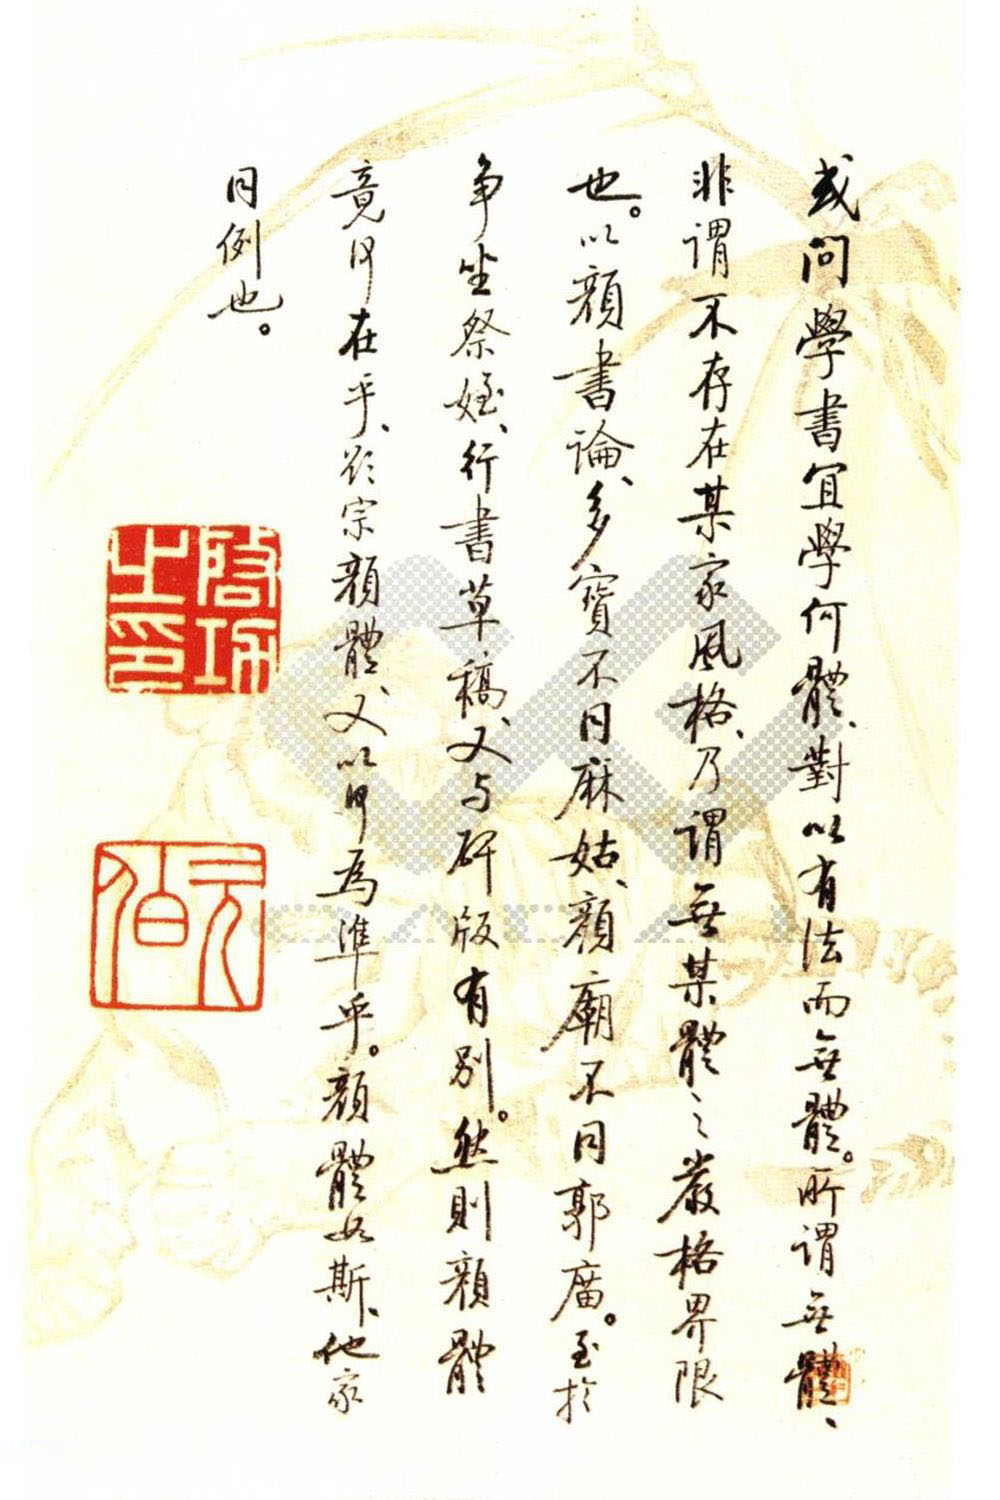 或问學書宜學何體、對以有法而无體。所谓无體、
非谓不存在某家風格、乃谓无某體之嚴格界限
也。以顔書論、多寶不同麻姑、顔廟不同郭廟。至於
争坐祭姪、行書草稿、又与碑版有别。然則顔體
竟何在乎、欲宗顔體、又以何爲準乎。顔體如斯、他家
同例也。
啓功之印
元伯